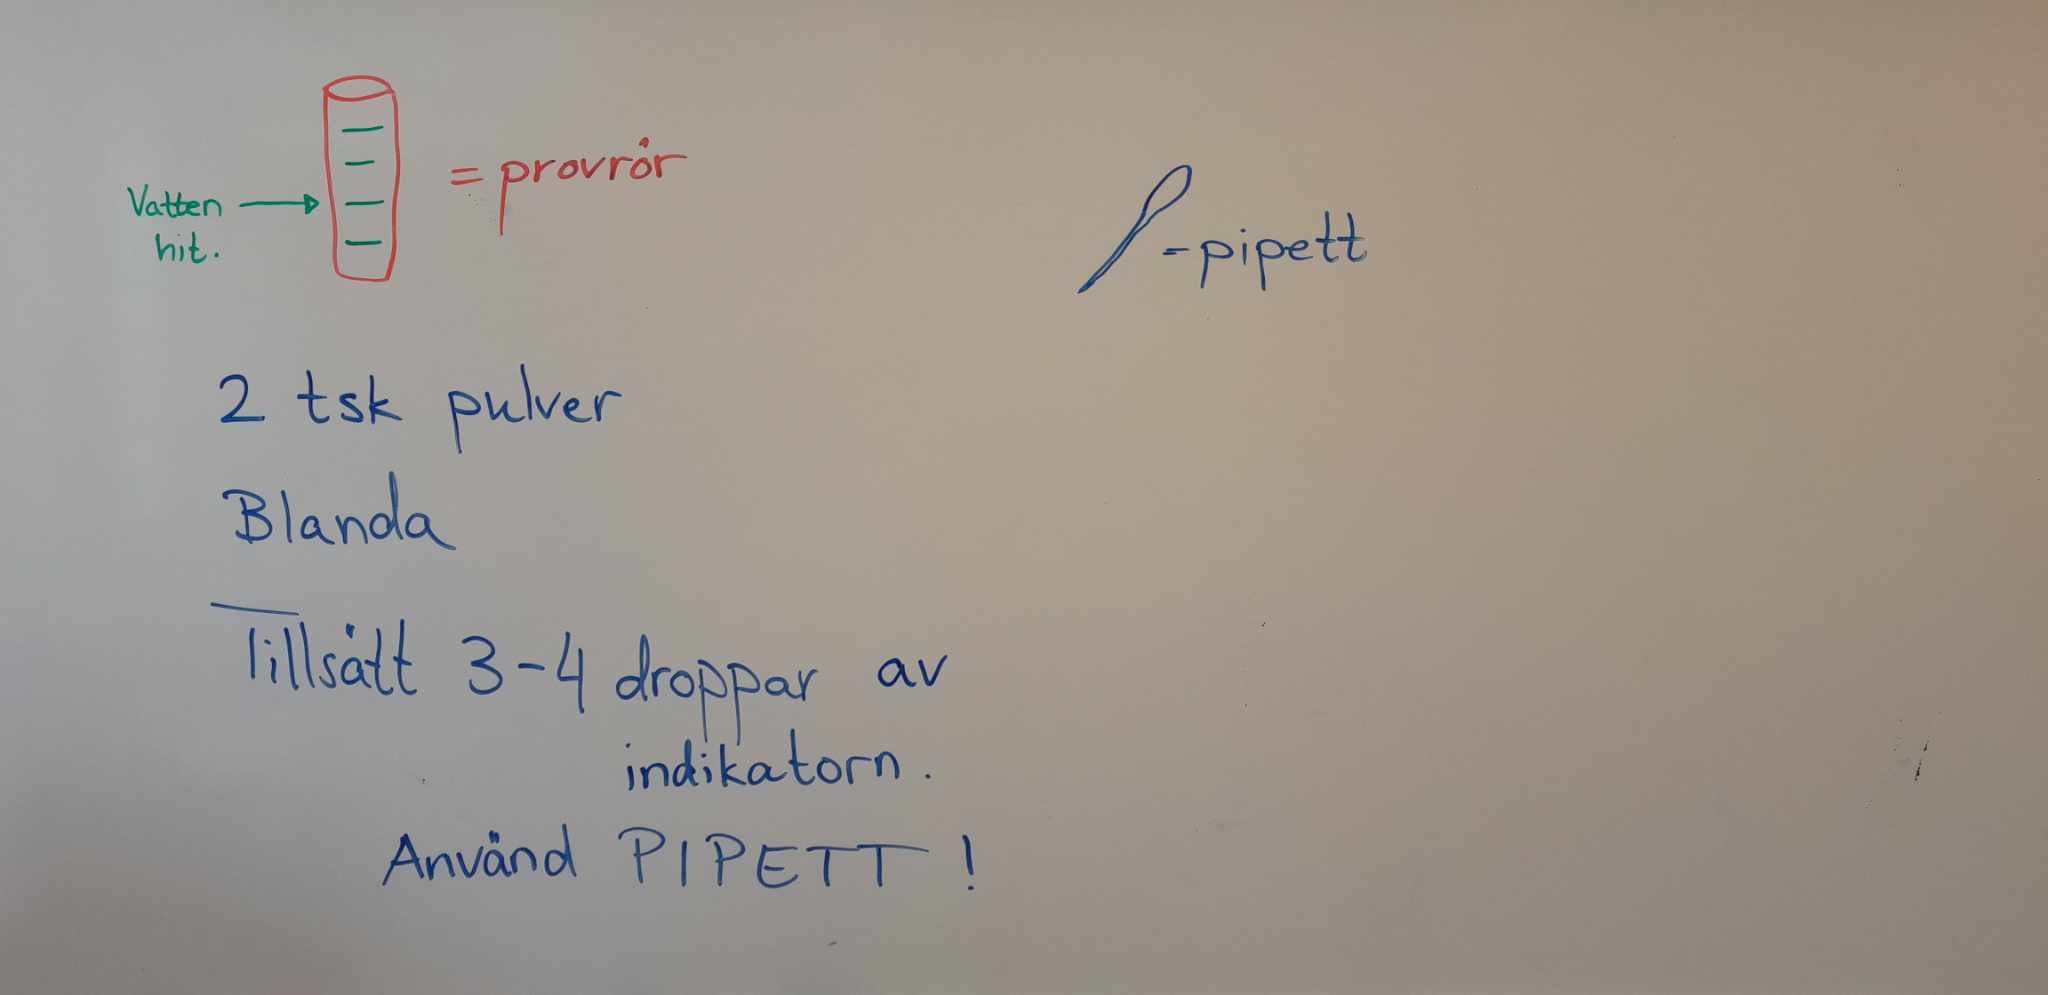 = provrör
Vatten
hit.
= pipett
2 tsk pulver
Blanda
Tillsätt 3-4 droppar av
indikatorn.
Använd PIPETT !